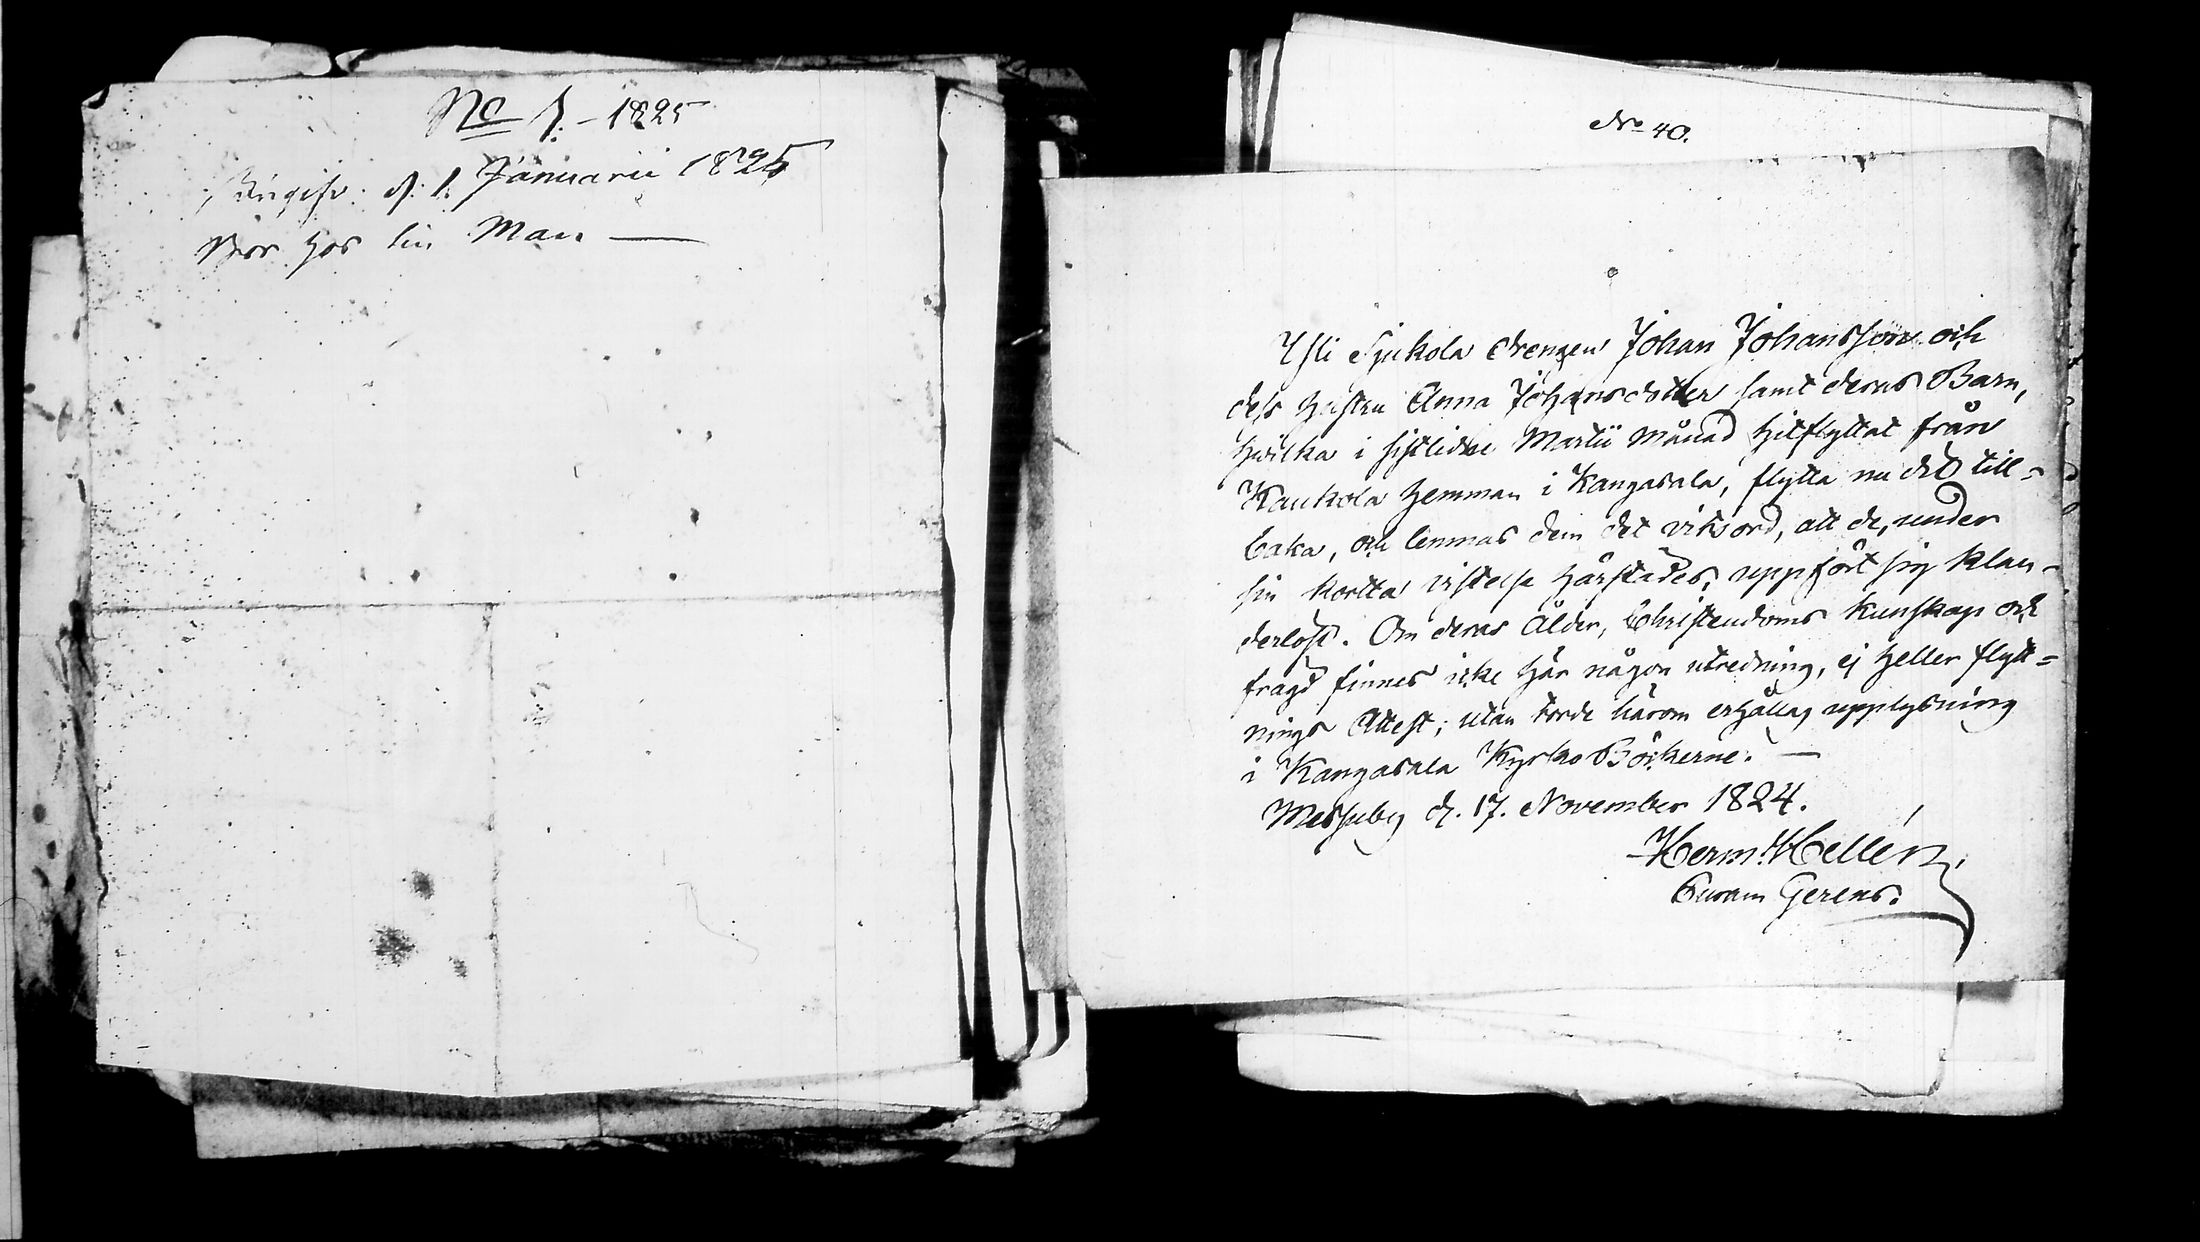 No 1. - 1825
Ingifv: d: 1. Januarii 1825
Bor hos sin Man —
No 40.
Ysli Sjukola drengen Johan Johansson och
dess hustru Anna Johansdotter samt deras Barn,
hwilka i sistledne Martii månad hitflyttat från
Kaukola hemman i Kangasala, flytta nu dit till-
baka, och lemnas dem det vitsord, att de, under
sin kortta vistelse härstädes, uppfört sig klan-
derlöst. Om deras Ålder, Christendoms kunskap och
frägd finnes icke här någon utredning, ej heller flytt-
nings Attest; utan torde härom erhållas upplysning
i Kangasala Kyrko Böckerne. —
Messuby d. 17. November 1824.
Herm: Hellén,
Curam Gerens.